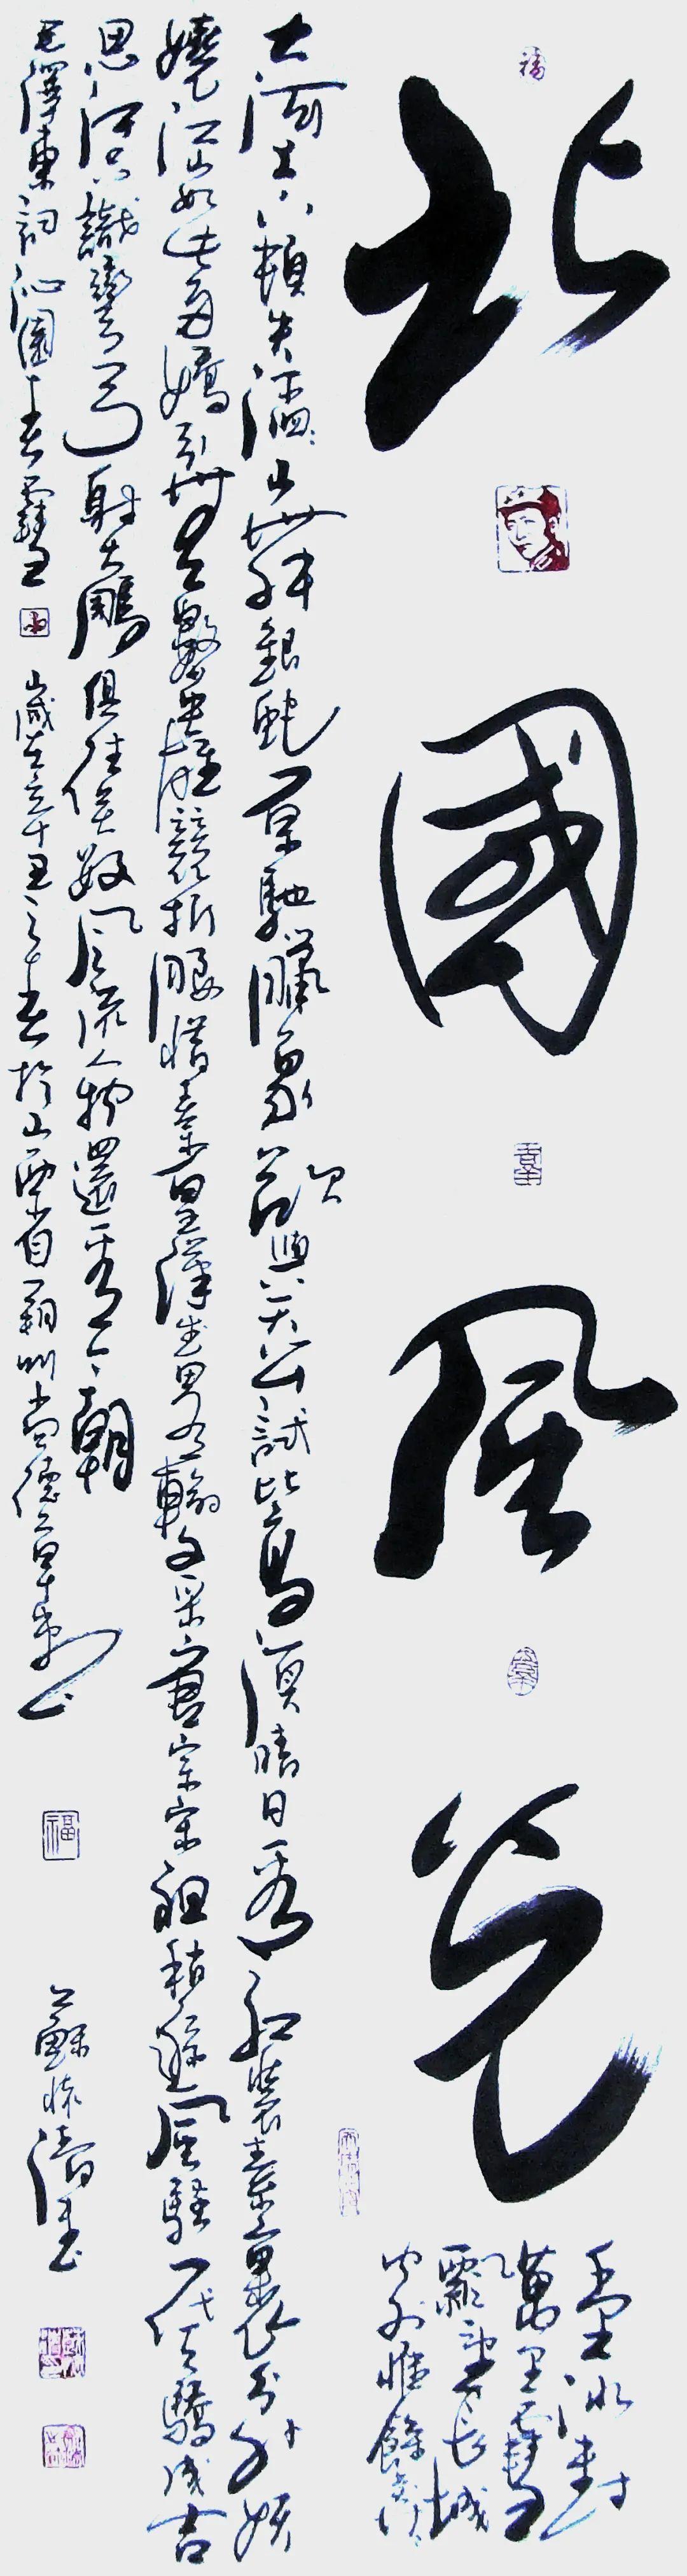 北國風光
千里冰封
萬里雪
飄望長城
內外惟餘莽莽
大河上下頓失滔滔山舞銀蛇原馳臘象欲與天公試比高須晴日看紅裝素裹分外妖
嬈江山如此多嬌引無數英雄競折腰惜秦皇漢武畧輸文采唐宗宋祖稍遜風騷一代天驕成吉
思汗只識彎弓射大鵰俱往矣數風流人物還看今朝
毛澤東詞沁園春雪 歲在辛丑之春於山西省朔州尚德
福
蘇懷書